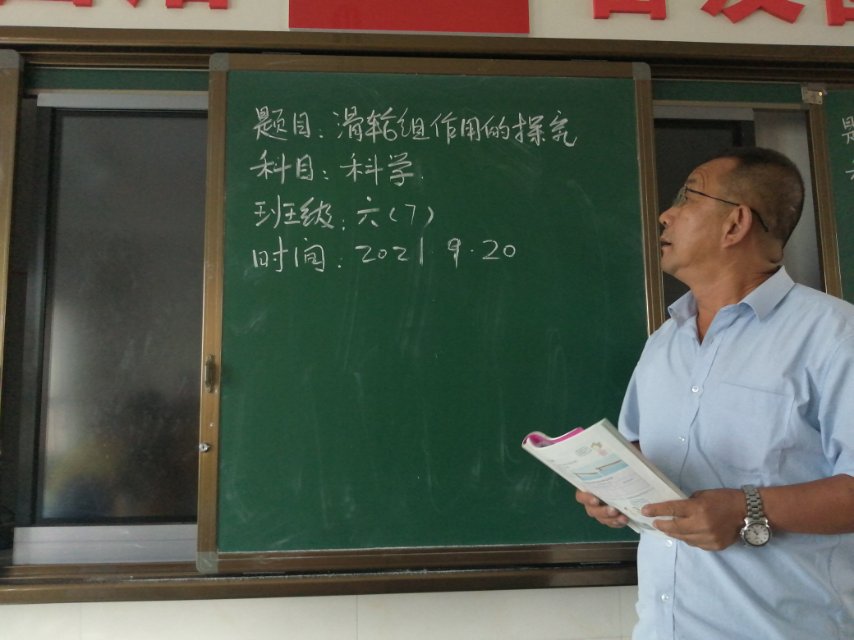 题目：滑轮组作用的探究
科目：科学.
班级：六(7)
时间：2021 9.20